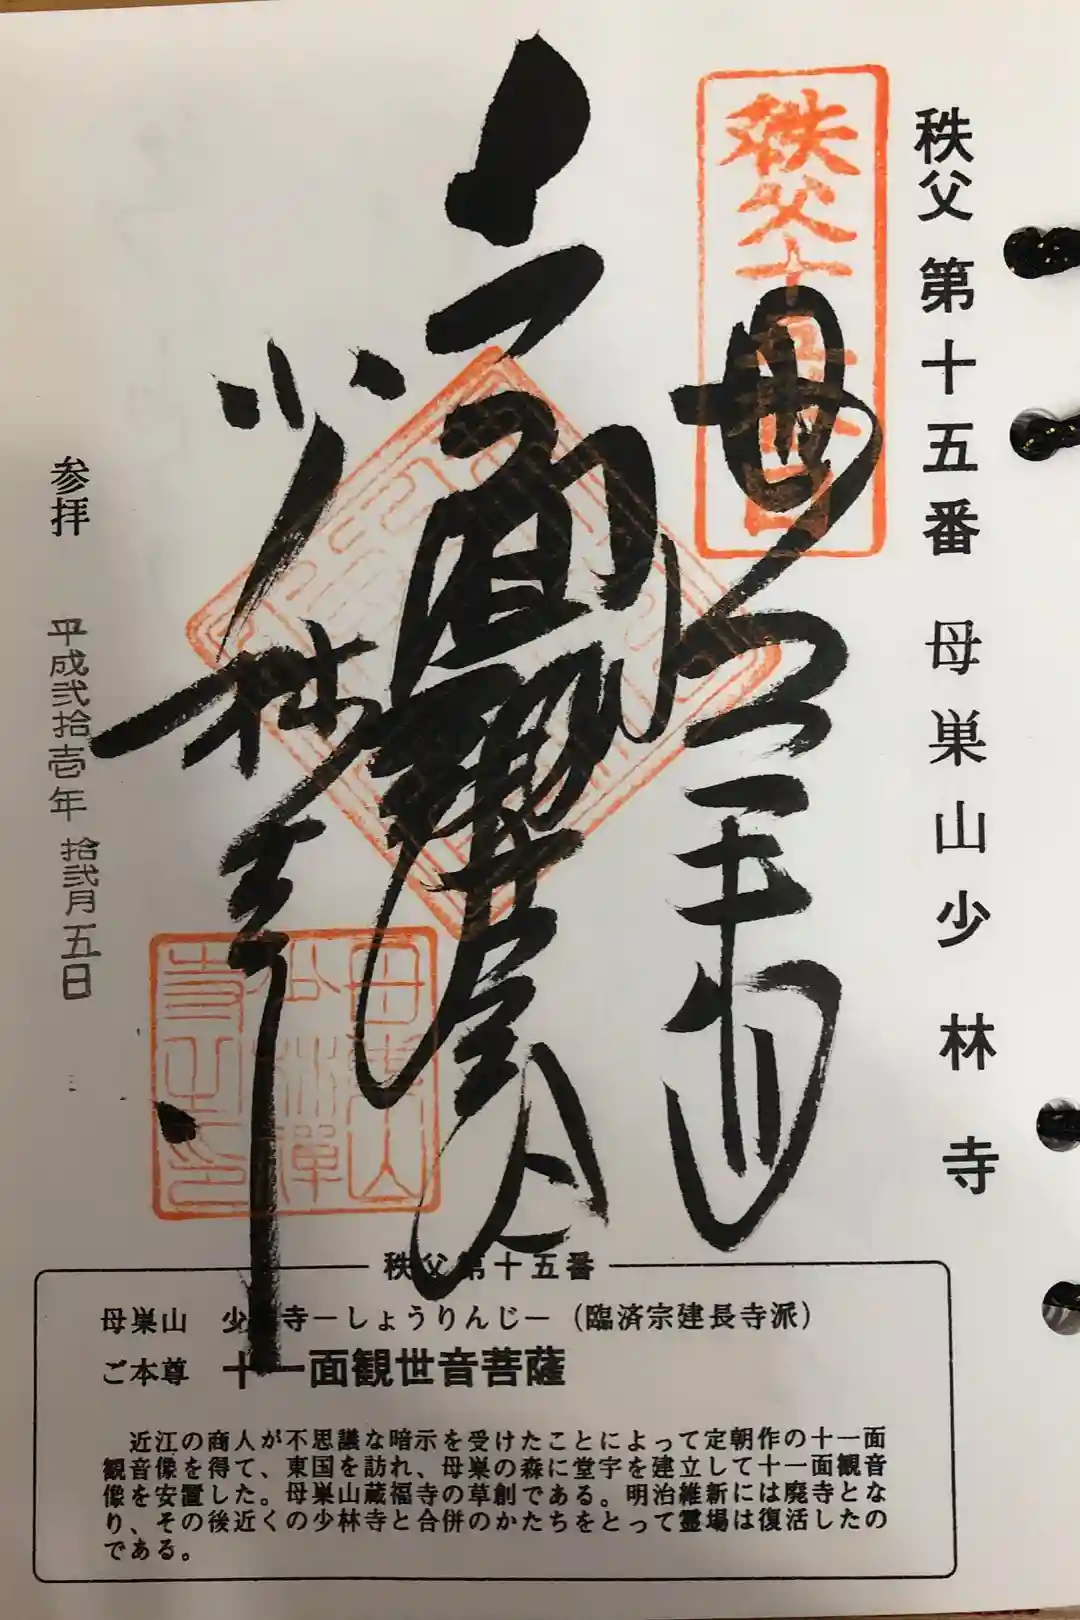 秩父第十五番 母巣山少林寺
秩父十五番
母巣山
少林寺
参拝 平成弐拾壱年 拾弐月五日
母巣山
少林禅
寺之印
秩父第十五番
母巣山 少林寺－しょうりんじ－（臨済宗建長寺派）
ご本尊 十一面観世音菩薩
近江の商人が不思議な暗示を受けたことによって定朝作の十一面
観音像を得て、東国を訪れ、母巣の森に堂宇を建立して十一面観音
像を安置した。母巣山蔵福寺の草創である。明治維新には廃寺とな
り、その後近くの少林寺と合併のかたちをとって霊場は復活したの
である。